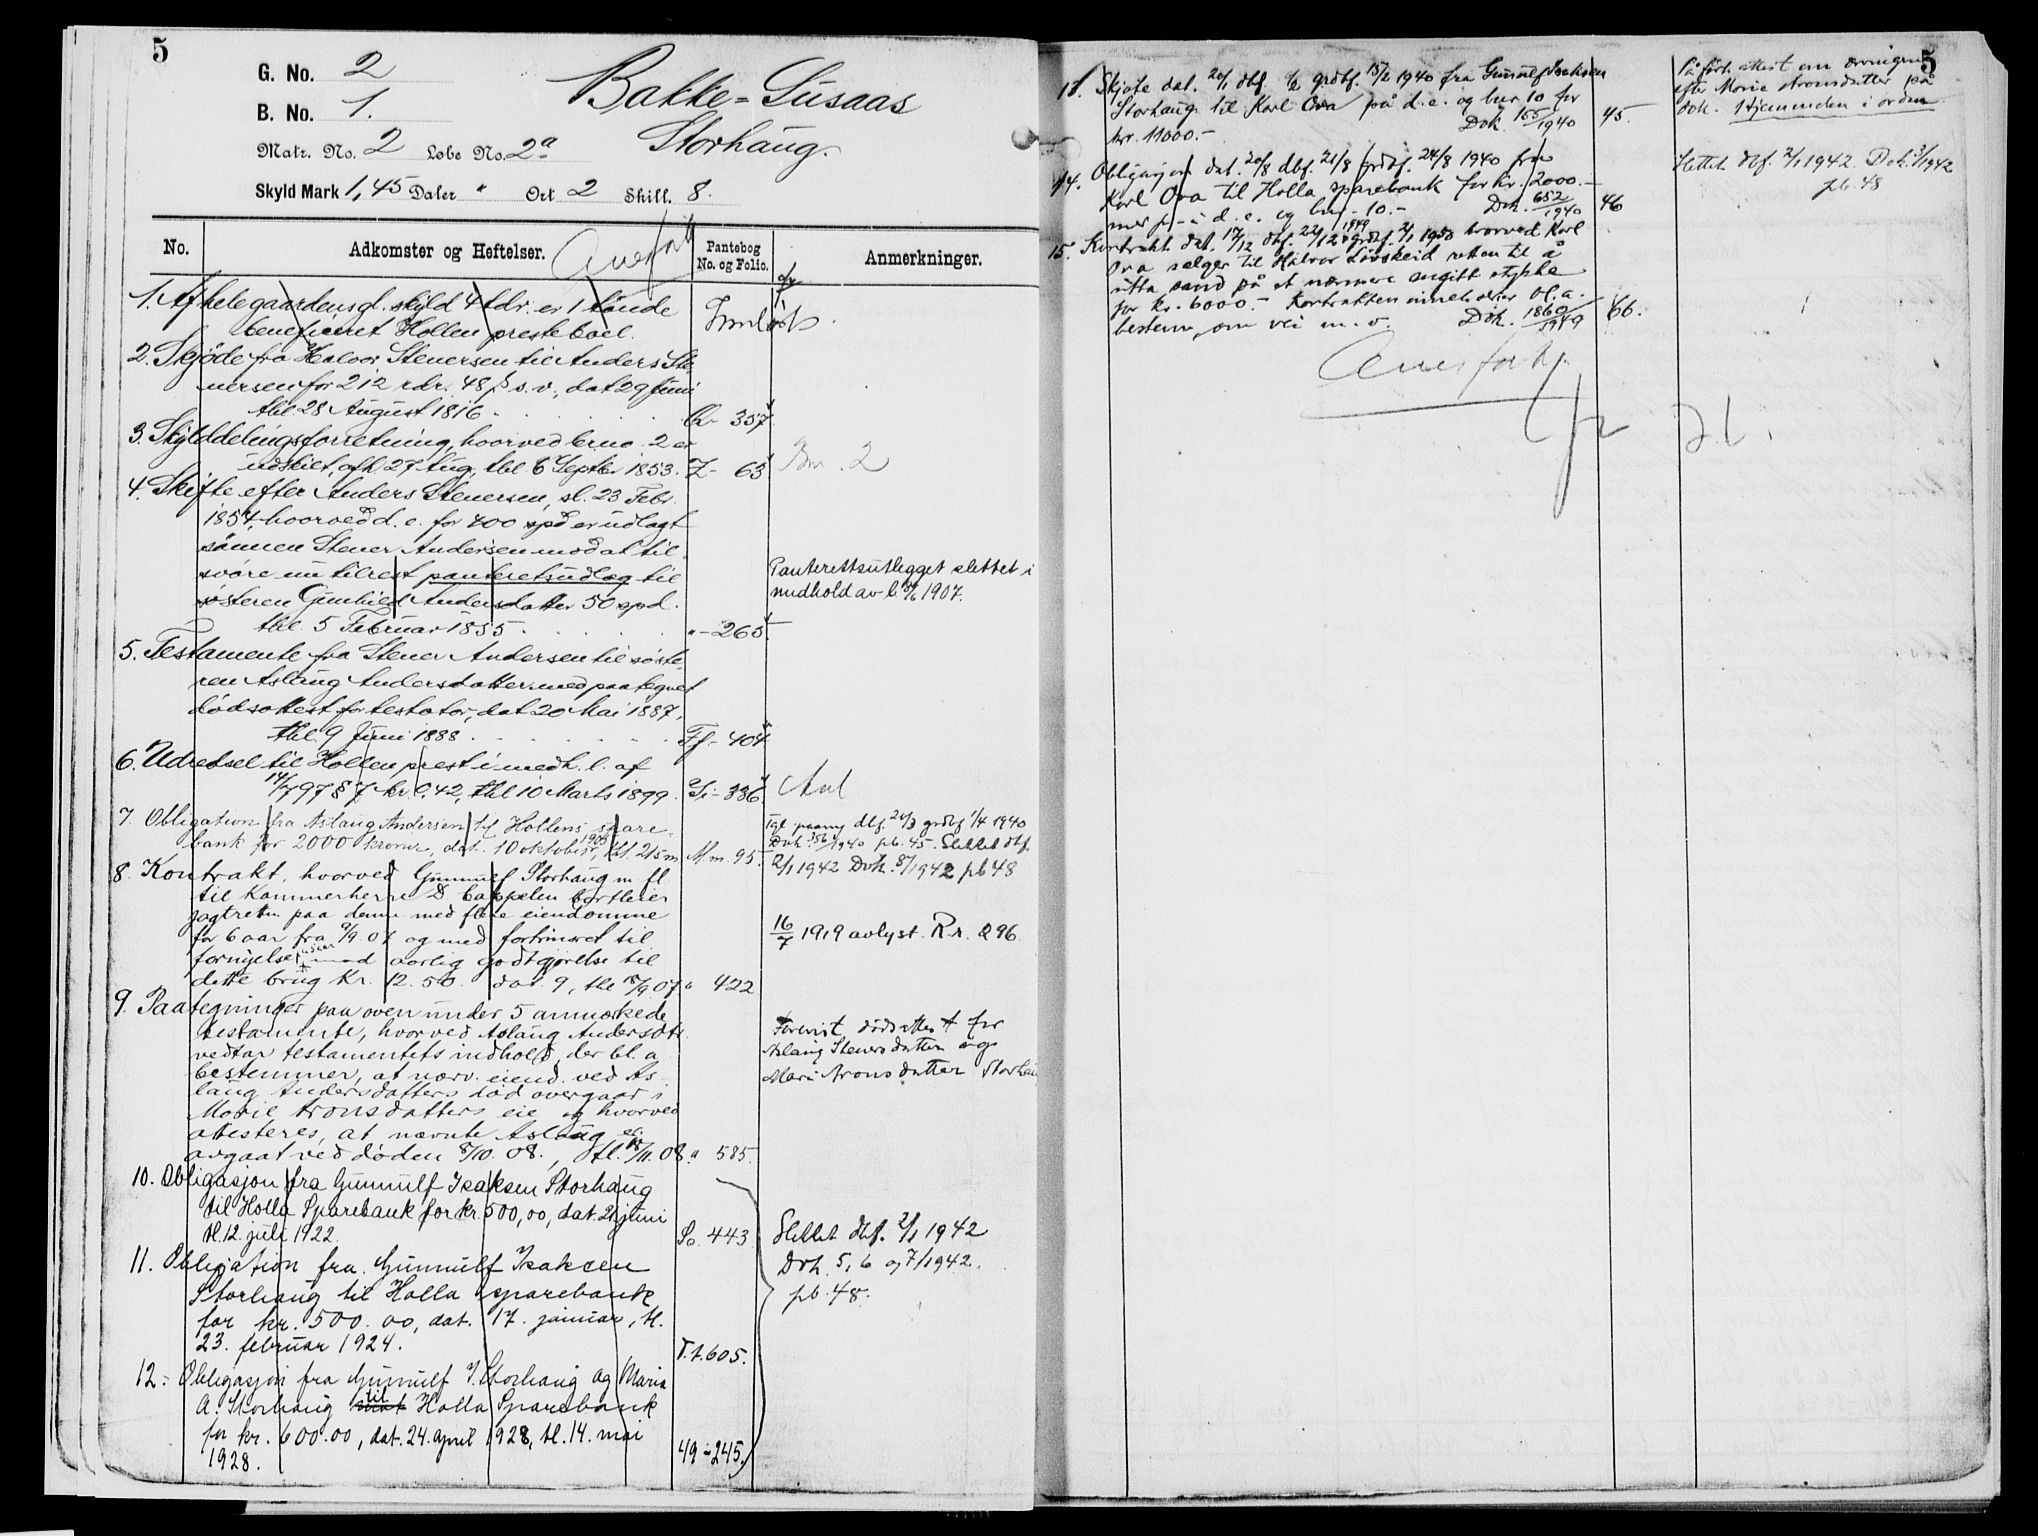 5
G. No. 2
B. No. 1.
Matr. No. 2 Løbe No. 2a
Skyld Mark 1,45 Daler " Ort 2 Skill. 8.
Bakke-Gusaas
Storhaug.
No.
Adkomster og Heftelser.
Pantebog
No. og Folio.
Anmerkninger.
1. Af hele gaardens gl. skyld 4 tdr. er 1 tønde
beneficeret Hollen presteboel.
Innløst.
2. Skjøde fra Halvor Stenersen til Anders Ste-
nersen for 212 rdr. 48 β s.v., dat 29 Juni
thl 28 August 1816 357
3. Skylddelingsforretning, hvorved brno. 2 er
udskilt, afh. 27 Aug, thl 6 Septbr 1853. Z - 63
Bno. 2
4. Skifte efter Anders Stenersen, sl. 23 Febr.
1854, hvorved d. e. for 400 spd er udlagt
sønnen Stener Andersen mod at til-
svare en tilrest panteretsudlæg til
søsteren Gunhild Andersdatter 50 spd.
thl. 5 Februar 1855 " - 265
Panterettsutlegget slettet i
medhold av l. 8/6 1907.
5. Testamente fra Stener Andersen til søste-
ren Aslaug Andersdatter med paategnet
dødsattest for testator, dat 20 Mai 1887,
thl. 9 Juni 1888 Ff - 404
6. Udredsel til Hollen prest i medh. l. af
14/7 97 § 7 kr. 0.42, thl 10 Marts 1899. - 336
7. Obligation fra Aslaug Andersen til Hollens spare-
bank for 2000 kroner, dat. 10 oktober, 1905 M m. 95.
Tgl. paateg dbf. grdbf 1/4 1940
Dok 356/1940 pb. 45. Slettet dbf.
2/1 1942 Dok. 8/1942 pb 48
8. Kontrakt, hvorved Gunnulf Storhaug m. fl.
til Kammerherre D Cappelen bortleier
jagtretten paa denne med flere eiendomme
for 6 aar fra 9/9 07 og med fortrinsret til
fornyelse mod aarlig godtgjørelse til
dette brug Kr. 12.50. dat. 9, thl 18/9.07. " 422
16/7 1919 avlyst. R.r. 296
9. Paategninger paa oven under 5 anmærkede
testamente, hvorved Aslaug Andersdtr.
vedtar testamentets indhold, der bl. a
bestemmer, at nærv. eiend. ved As-
laug Andersdatters død overgaar i
Marie Aronsdatters eie og hvorved
attesteres, at nævnte Aslaug er
avgaat ved døden 8/10. 08., tl. 18/11. 08. " 585.
Forevist dødsattest for
Aslaug Stenersdatter og
Mari Aronsdatter
10. Obligasjon fra Gunnulf Isaksen Storhaug
til Holla Sparebank for kr. 500,00, dat. 21 juni
tl. 12. juli 1922. So. 443
11. Obligation fra Gunnulf Isaksen
Storhaug til Holla sparebank
for kr. 500.00, dat. 17. januar, tl.
23. februar 1924. T.t. 605.
12. Obligasjon fra Gunnulf I. Storhaug og Maria
A. Storhaug til Holla Sparebank
for kr. 600.00, dat. 24. april 1928, tl. 14. mai
1928. 49 - 245.
Slettet dbf. 2/1 1942
Dok. 5, 6 og 7/1942.
pb. 48.
5
Skjøte dat. 20/1 dbf. grdbf. 15/2 1940 fra Gunnulf Isaksen
Storhaug til Karl Ova på d.e. og bnr 10 for
kr. 11000.- Dok. 155/1940 45.
Påført attest om
efter Marie Aronsdatter på
dok. Hjemmelen i orden.
14. Obligasjon dat. 20/8 dbf. 21/8 grdbf. 24/8 1940 fra
Karl Ova til Holla sparebank for kr. 2000.-
d.e. og bnr. 10.- Dok. 652/1940 46
Slettet dbf. 2/1 1942. Dok. 3/1942
pb. 48
15. Kontrakt dat. 17/12 dbf. 22/12 1949 grdbf. 2/1 1950 hvorved Karl
Ova selger til Halvor Livskeid retten til å
utta sand på et nærmere angitt stykke
for kr. 6000.- Kontrakten inneholder bl.a.
bestem. om vei m.v. Dok. 1860/1949 66.